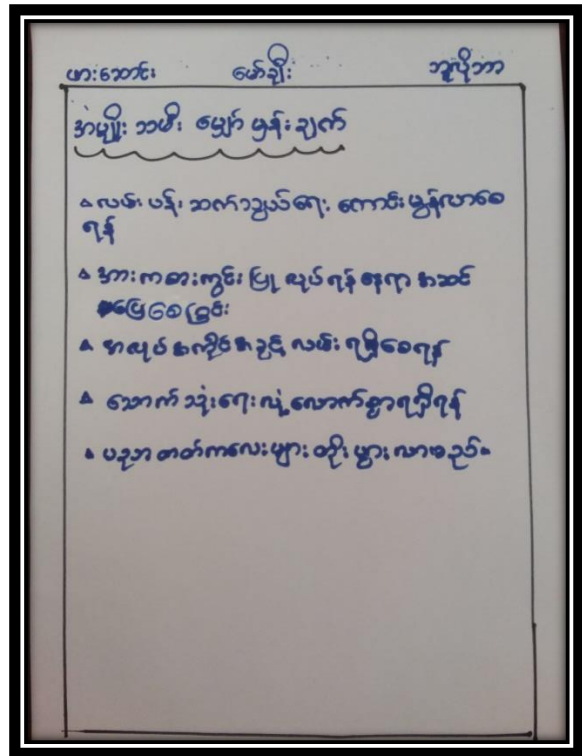 ဖားဆောင်း မော်ချီး ဘူလိုဘာ
အမျိုး သမီး မျှော် မှန်း ချက်
လမ်း ပန်း ဆက်သွယ်ရေး ကောင်းမွန်လာစေ
ရန်
အားကစားကွင်း ပြု လုပ်ရန် နေရာ အဆင်
ပြေစေခြင်း
အလုပ် အကိုင် အခွင့် လမ်း ရရှိစေရန်
သောက် သုံးရေ လုံ လောက်စွာ ရရှိရန်
ပညာ တတ်ကလေးများ တိုး ပွား လာမည်။